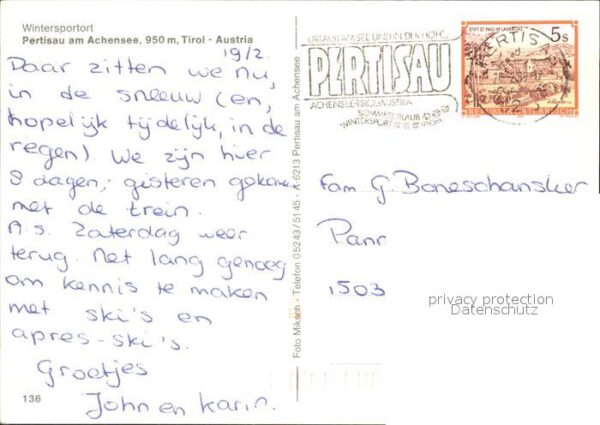 Wintersportort
Pertisau am Achensee, 950 m, Tirol - Austria
19/2.
Daar zitten we nu,
in de sneeuw (en,
hopelijk tijdelijk, in de
regen). We zijn hier
8 dagen; gisteren gekomen
met de trein.
A.s. Zaterdag weer
terug. Net lang genoeg
om kennis te maken
met ski's en
apres-ski's.
Groetjes
John en Karin.
136
Foto Miksch - Telefon 05243/5145 - A-6213 Pertisau am Achensee
URLAUB AM SEE UND IN DER HÖH'
PERTISAU
ACHENSEE TIROL AUSTRIA
SOMMERURLAUB
WINTERSPORT
PERTISAU
STIFT ST. PAUL IM LAVANTTAL
5s
REPUBLIK ÖSTERREICH
Fam. G. Boneschansker
Panr
1503
privacy protection
Datenschutz